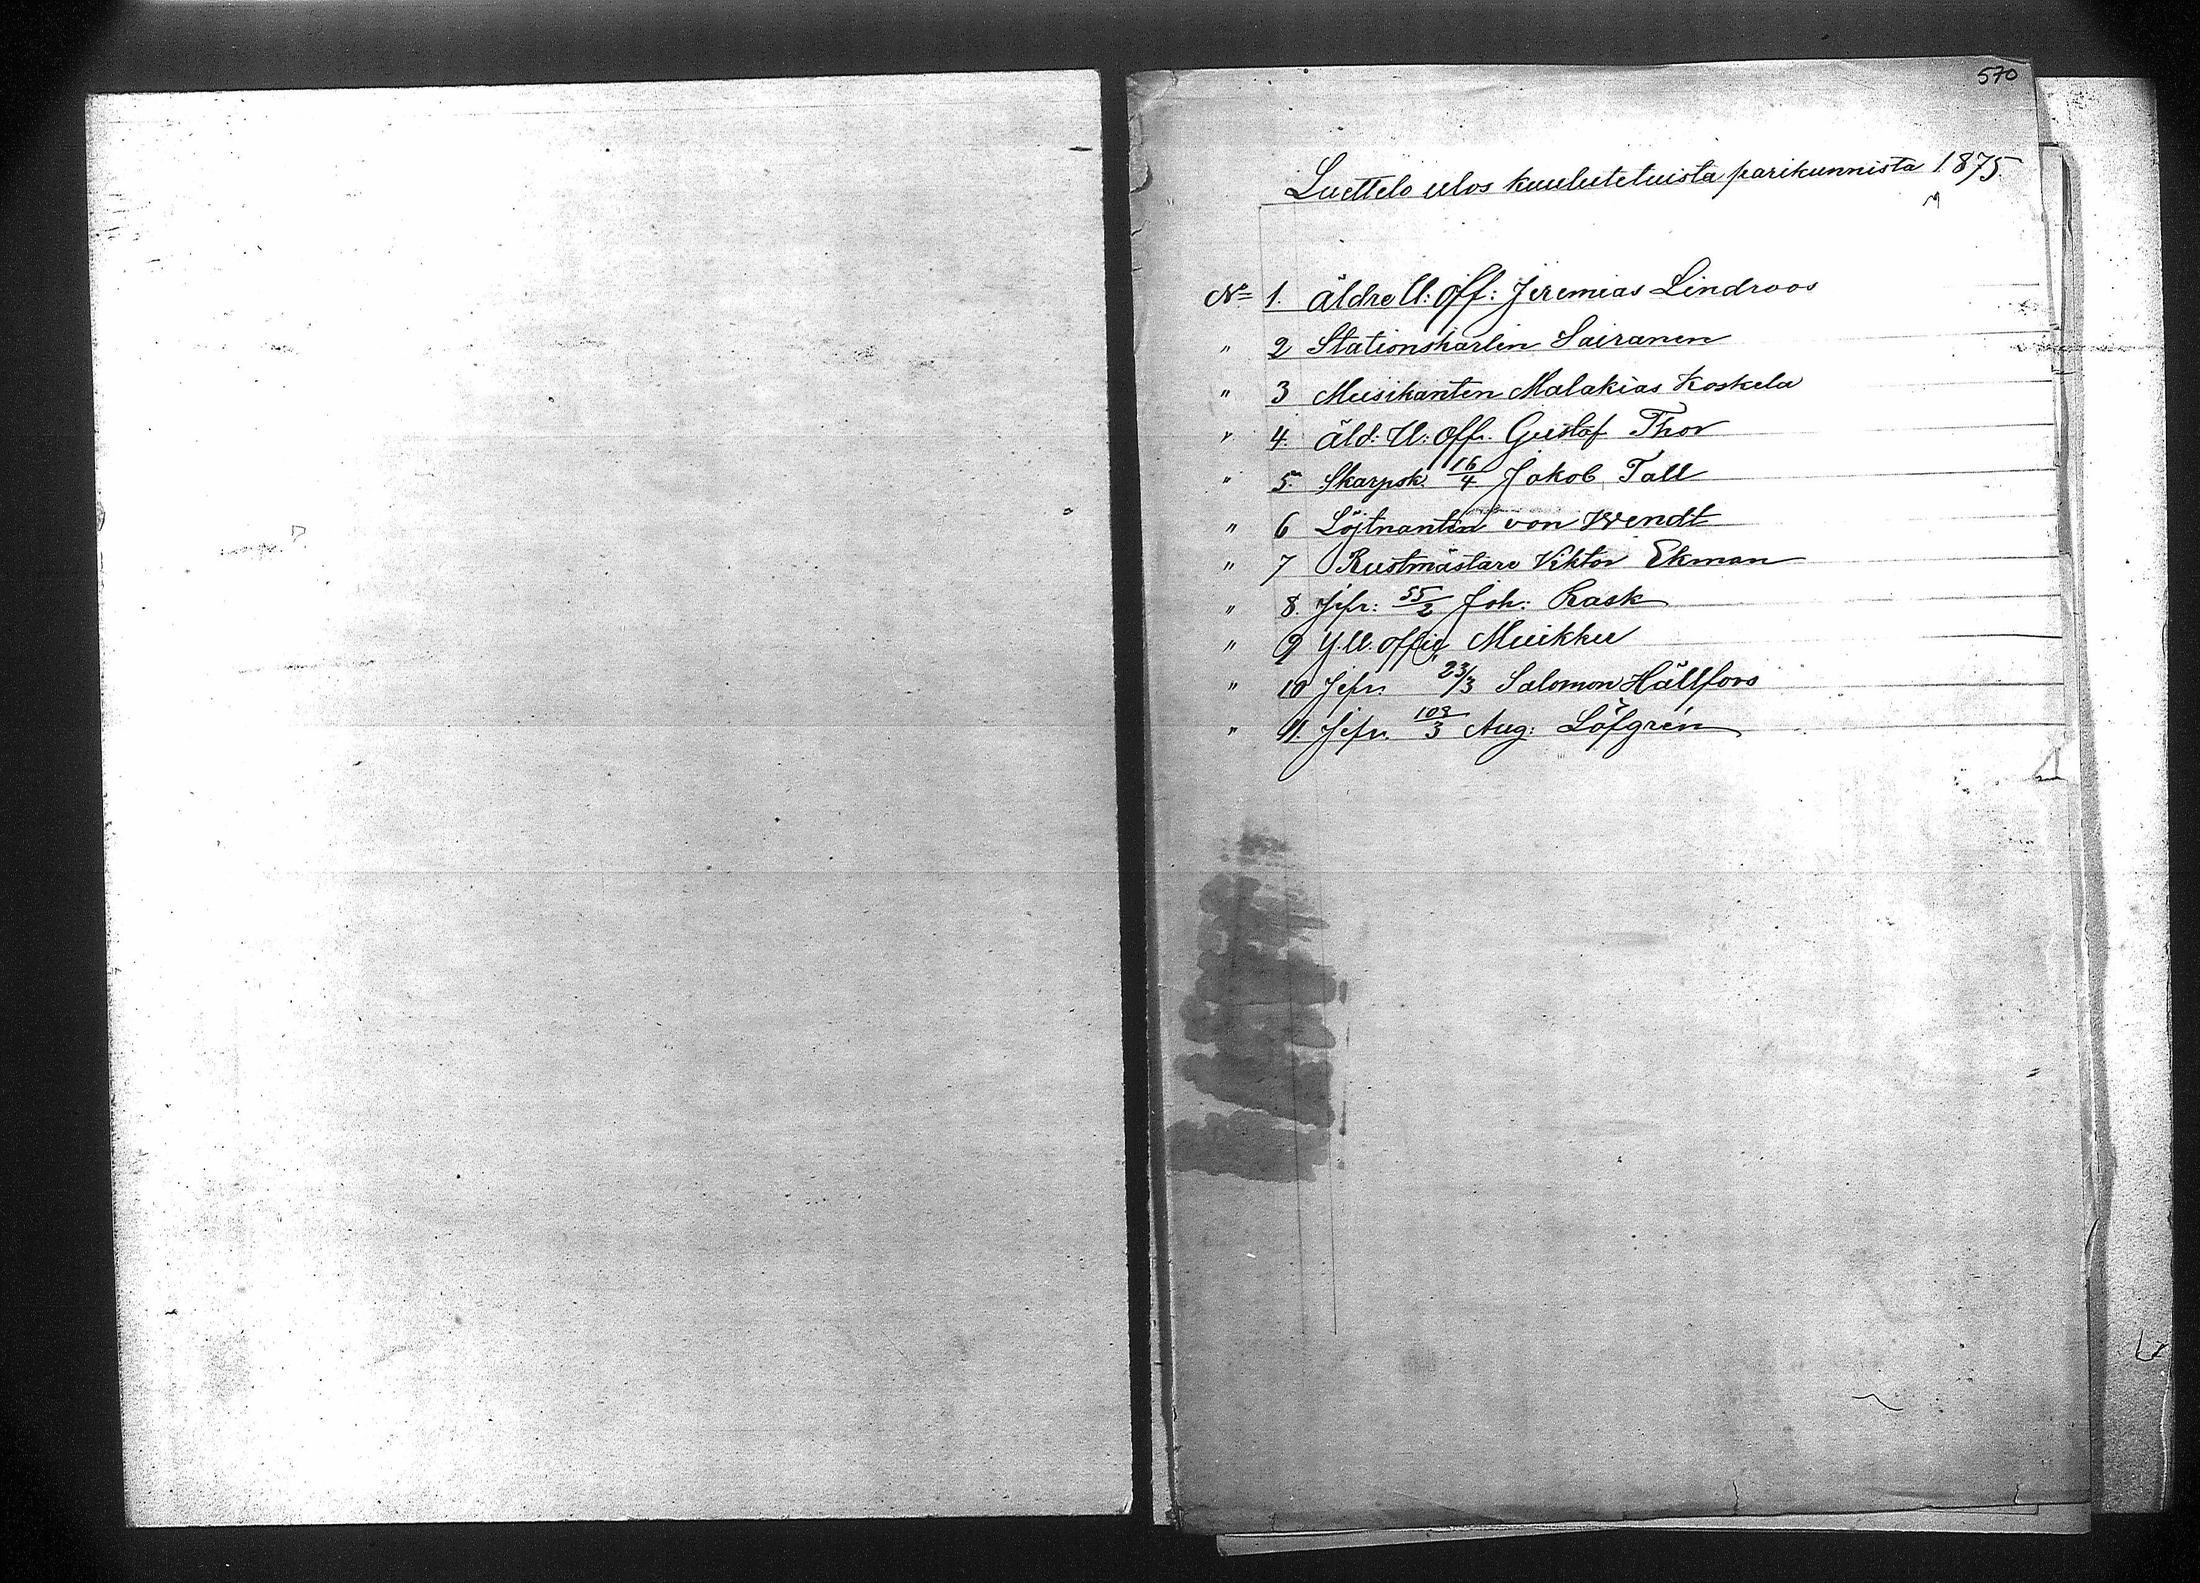 570
Luettelo ulos kuulutetuista parikunnista 1875
No 1. Äldre U: Off: Jeremias Lindroos
" 2 Stationskarlen Sairanen
" 3 Musikanten Malakias Koskela
" 4. Äld: U: Off. Gustaf Thor
" 5. Skarpsk. 16/4 Jakob Tall
" 6 Löjtnanten von Wendt
" 7 Rustmästare Viktor Ekman
" 8. Jefr: 55/2 Joh: Rask
" 9 Y.U. Offic Muikku
" 10 Jefr. 23/3 Salomon Hällfors
" 11. Jefr. 108/3 Aug: Löfgrén